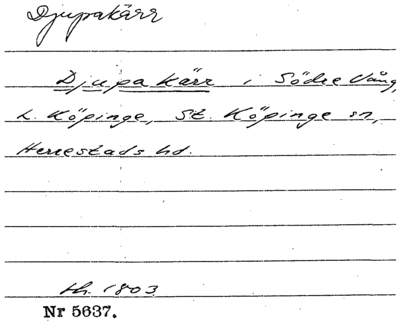 Djupakärr
Djupa kärr i Södre Vång,
L. Köpinge, St. Köpinge sn,
Herrestads hd.
th. 1803
Nr 5637.